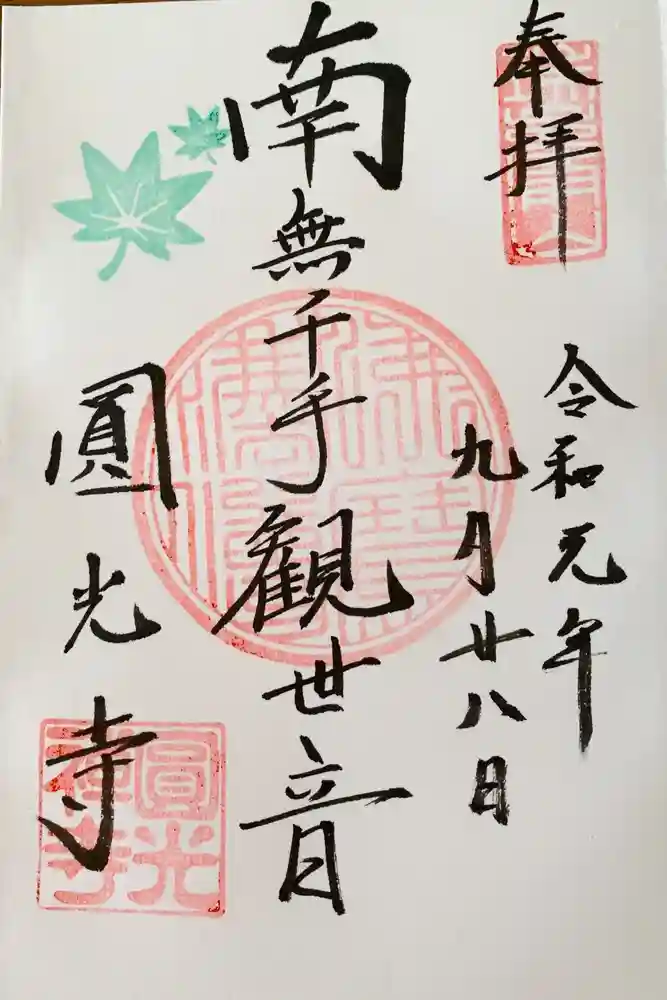 奉拝
令和元年
九月廿八日
南無千手観世音
圓光寺
圓光禅寺